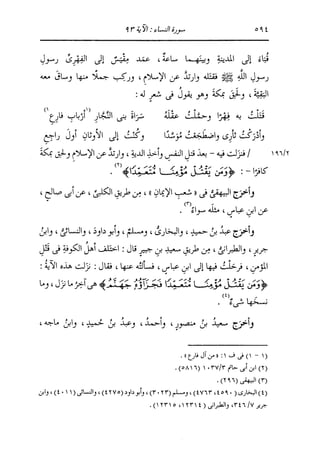 ٥٩٤ سورة النساء : الآية ٩٣
قُباءَ إلى المدينةِ وبينَهما ساعةٌ ، عمَد مِقْيَسٌ إلى الفِهْرِىِّ رسولِ
رسولِ اللَّهِ ﷺ فقتَله وارتدَّ عن الإسلامِ ، وركِب جملًا منها وساقَ معه
البَقيَّةَ ، ولحِق بمكةَ وهو يقولُ فى شعرٍ له :
قتَلْتُ به فِهْرًا وحمَّلْتُ عَقْلَهُ سَرَاةَ بنى النَّجَّارِ (١)أربابَ فارِعِ(١)
وأدْرَكْتُ ثأْرِى واضطَجَعْتُ مُوَسَّدًا وكُنْتُ إلى الأوثانِ أولَ راجعِ
١٩٦/٢ / فنزلت فيه - بعدَ قتلِ النفسِ وأخذِ الديةِ ، وارتدَّ عن الإسلامِ ولحِق بمكةَ
كافرًا - : ﴿وَمَن يَقْتُلْ مُؤْمِنًا مُّتَعَمِّدًا﴾(٢) .
وأخرَج البيهقىُّ فى «شعبِ الإيمانِ» ، من طريقِ الكلبىِّ ، عن أبى صالحٍ ،
عن ابنِ عباسٍ ، مثلَه سواءً(٣) .
وأخرَج عبدُ بنُ حميدٍ ، والبخارىُّ ، ومسلمٌ ، وأبو داودَ ، والنسائىُّ ، وابنُ
جريرٍ ، والطبرانىُّ ، من طريقِ سعيدِ بنِ جبيرٍ قال : اختلَف أهلُ الكوفةِ فى قتْلِ
المؤمنِ ، فرحَلْتُ فيها إلى ابنِ عباسٍ ، فسألتُه عنها ، فقال : نزلت هذه الآيةُ :
﴿وَمَن يَقْتُلْ مُؤْمِنًا مُّتَعَمِّدًا فَجَزَآؤُهُ جَهَنَّمُ﴾ هى آخرُ ما نزَل ، وما
نسَخها شىءٌ(٤) .
وأخرَج سعيدُ بنُ منصورٍ ، وأحمدُ ، وعبدُ بنُ حُميدٍ ، وابنُ ماجه ،
(١ - ١) فى ف ١ : «من آل فارع» .
(٢) ابن أبى حاتم ١٠٣٧/٣ (٥٨١٦) .
(٣) البيهقى (٢٩٦) .
(٤) البخارى (٤٥٩٠، ٤٧٦٣) ، ومسلم (٣٠٢٣) ، وأبو داود (٤٢٧٥) ، والنسائى (٤٠١١) ، وابن
جرير ٣٤٦/٧ ، والطبرانى (١٢٣١٤، ١٢٣١٥) .